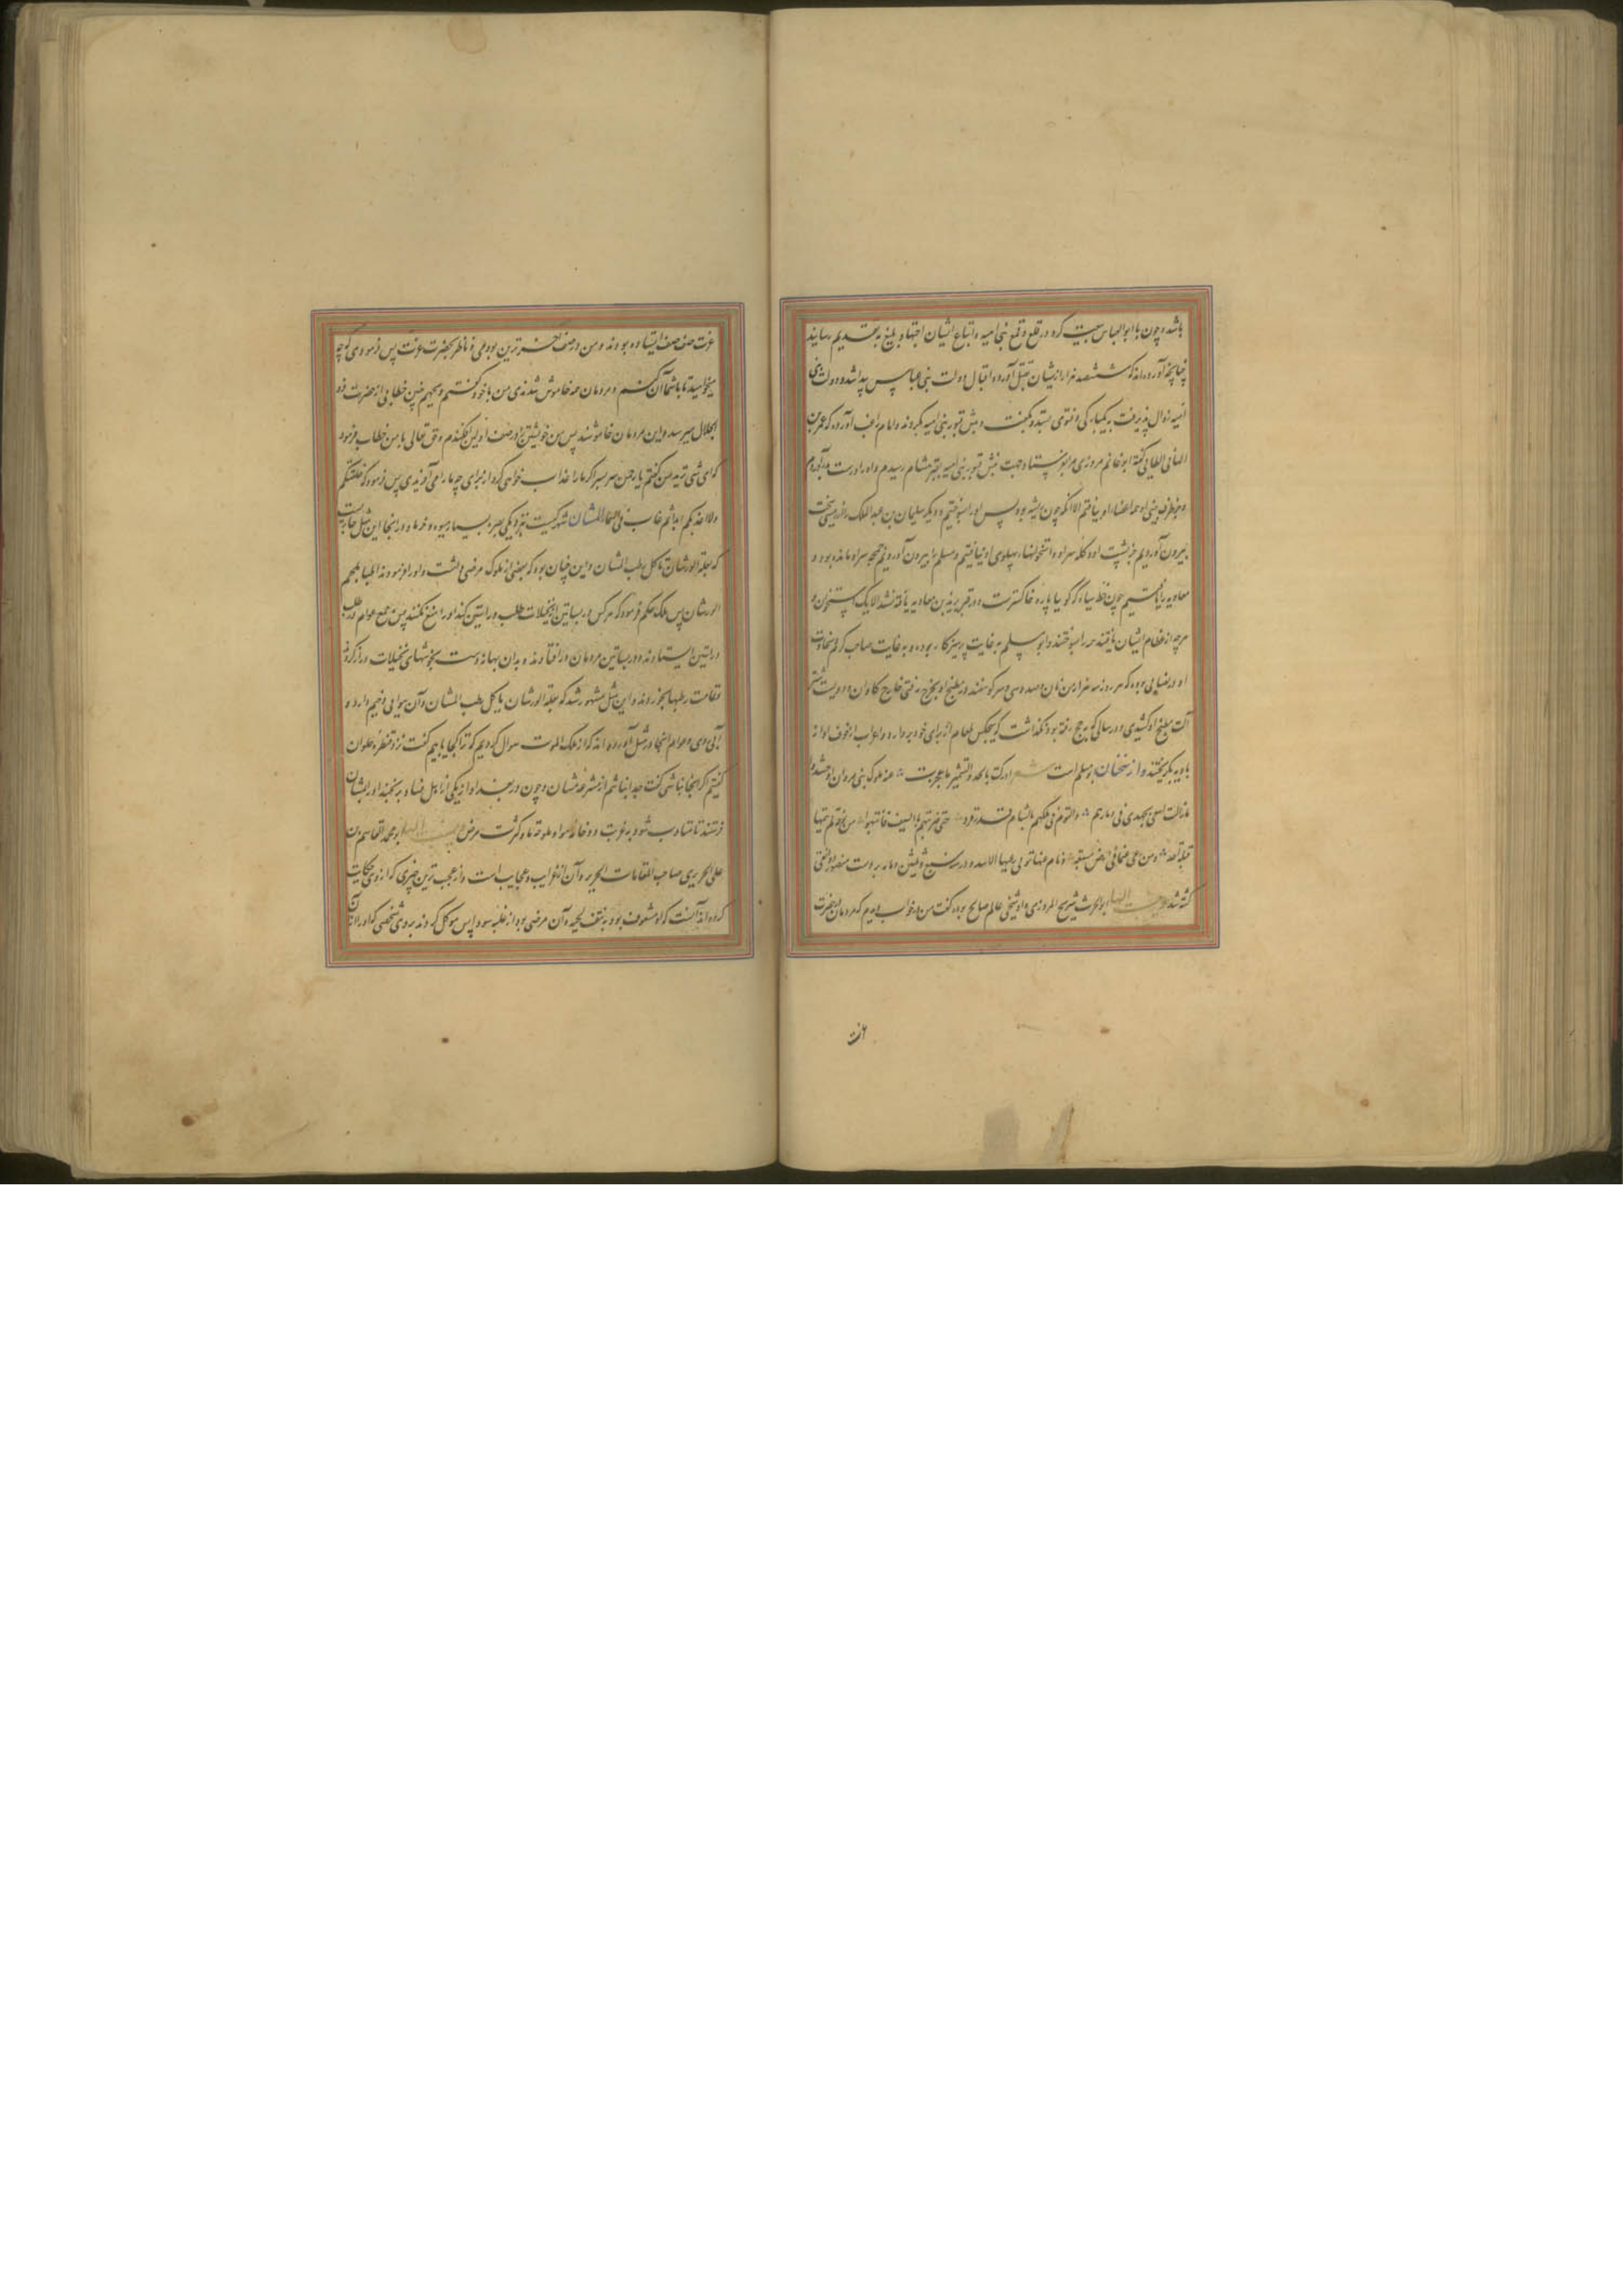 باشد و چون با ابو العباس بیعت کرد در قلع و قمع بنی امیه و اتباع ایشان اجتهاد بلیغ به تقدیم رسانید
چنانچه آورده‌اند که ششصد هزار از یشان بقتل آورد و اقبال دولت بنی عباس پیدا شد و دولت بنی
امیه زوال پذیرفت و نبش قبور بنی امیه بکردند و امام راغب آورده که عمر بن
الهانی الطایی گفته ابو غانم مروزی مرا بفرستاد جهت نبش قبور بنی امیه بقبر هشام رسیدم و او را درست بدر آوردم
بینی او همه اعضاء او بیافتم الا آنکه چون بود پس او را بسوختیم و دیگر سلیمان بن عبد الملک را
بیرون آوردیم جز پشت او و کله سر او و استخوانهاء پهلوی او نیافتیم و مسلم را بیرون آوردیم جمجمه سر او مانده بود و
معاویه را یافتیم چون خط سیاه که گویا پاره خاکسترست و در قبر یزید بن معاویه یافته نشد الا یک استخوان و
هرچه از عظام ایشان یافتند همه را بسوختند و ابو مسلم به غایت پرهیزکار بوده و به غایت صاحب کرم و سخاوت
او در ضیافی بوده که هر روز سه هزار من نان و صد و سی سر گوسفند در مطبخ او بخرج رفتی خارج گاوان و دویست شتر
آلت مطبخ او کشیدی و در سالی که به حج رفته بود نگذاشت که هیچکس طعام از برای خود بردارد و اعراب از خوف او از
بادیه بگریختند و از سخنان ابو مسلم است شعر ادرکت بالحزم و الکتمان ما عجزت عنه ملوک بنی مروان اذ حشدوا
ما زلت اسعی بجهدی فی دمارهم و القوم فی ملکهم بالشام قد رقدوا حتی ضربتهم بالسیف فانتبهوا من نومة لم ینمها
قبلهم احد و من رعی غنما فی ارض مسبعة و نام عنها تولی رعیها الاسد و در سنه سبع و ثلثین و مایه بر دست منصور دوانقی
کشته شد ابو الحرث شریح المروزی و او شیخی عالم صالح بوده گفت من در خواب دیدم که مردمان بحضرت
عزت
عزت صف صف ایستاده بودند و من در صف آخرترین بودمی و ناظر بحضرت عزت پس فرمودی که چه
میخواهید تا با شما آن کنم و مردمان همه خاموش شدندی من با خود گفتم ویحهم چنین خطابی از حضرت ذو
الجلال میرسد و این مردمان خاموشند پس من خویشتن را در صف اولین افکندم و حق تعالی با من خطاب فرمود
که ای شی ترید من گفتم یا رحمن سر سبر اگر ما را عذاب خواهی کرد از برای چه ما را می آفریدی پس فرمود که خلقتکم
ولا اعذبکم ابدا ثم غاب فی السماء المشان شهرکیست نزدیکی بصره بسیار میوه و خرما و در اینجا این مثل جاریست
که بعلة الورشان تأکل رطب المشان و این چنان بود که بعضی از ملوک مرضی داشت و او را فرمودند اطبا بلحم
الورشان پس ملک حکم فرمود که هر کس در بساتین از نخیلات طلب وراشین کند او را منع نکنند پس جمع عوام در طلب
وراشین ایستادند و در بساتین مردمان در افتادند و بدان بهانه دست بخوشهای نخیلات دراز کردند
و تمامت رطبها بخوردند و این مثل مشهور شد که بعلة الورشان یأکل رطب المشان و آن هوایی وخیم دارد و
آبی ردی و عوام آنجا در مثل آورده‌اند که از ملک الموت سوال کردیم که ترا کجا یابیم گفت نزد قنطره حلوان
گفتیم اگر آنجا نباشی گفت جدا نباشم از مشرعه مشان و چون در بغداد از یکی از اهل فساد برنجند او را بمشان
فرستند تا متادب شود به غربت و وخامت هوا و ملوحة ما و کثرت مرض ابو محمد القاسم بن
علی الحریری صاحب المقامات الحریریه و آن از غرایب و عجایب است و از عجب ترین چیزی که از وی حکایت
کرده‌اند آنست که او مشعوف بود به نتف لحیه و آن مرضی بود از غلبه سودا پس موکل کردند بر وی شخصی که او را از آن